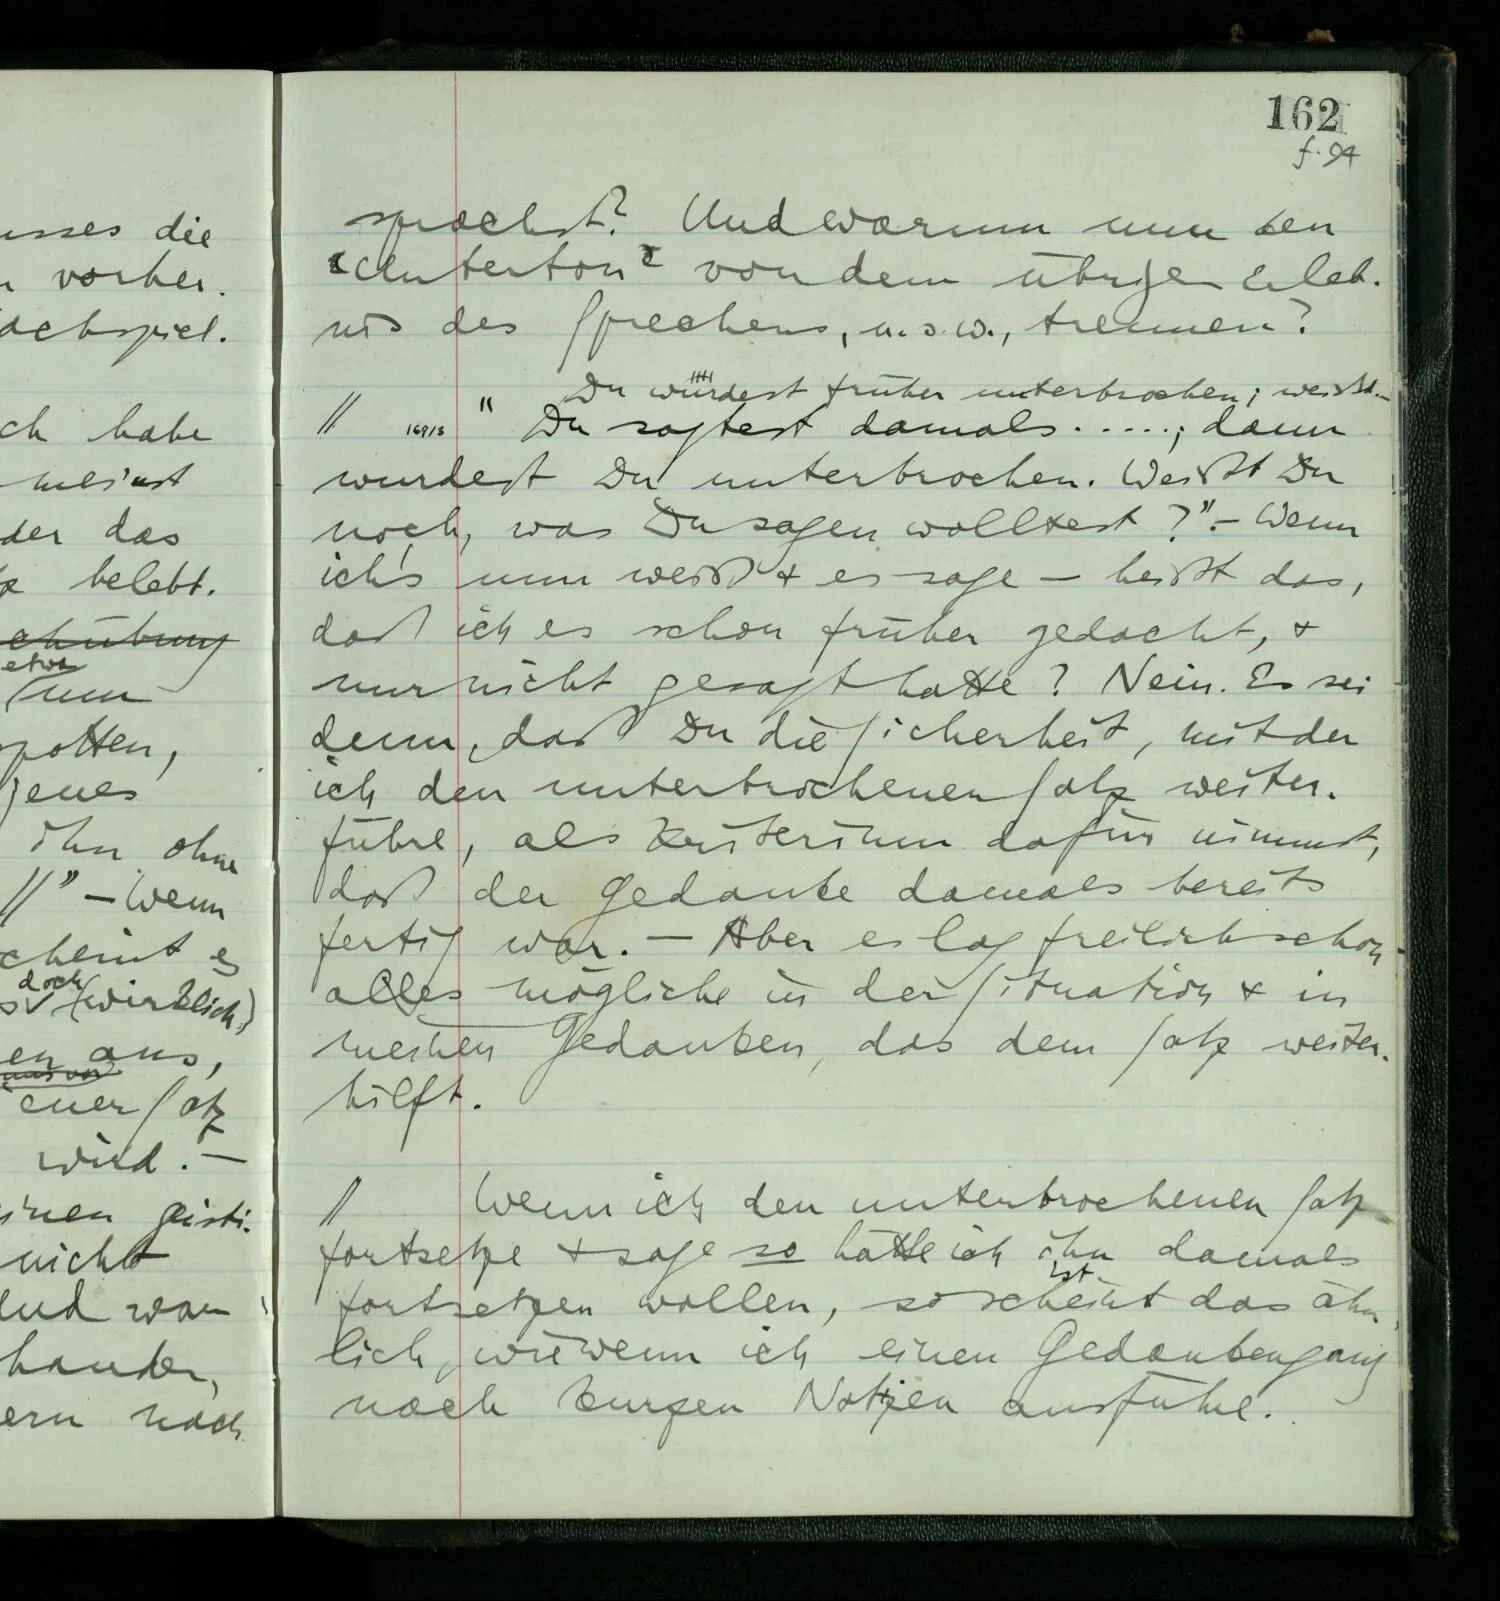 162
f. 94
sprachst? Und warum nun den
"Unterton" von dem übrigen Erleb-
nis des Sprechens, u.s.w., trennen?
Du würdest früher unterbrochen; weißt
// " Du sagtest damals .....; dann
wurdest Du unterbrochen. Weißt Du
noch, was Du sagen wolltest?" – Wenn
ich's nun weiß & es sage – heißt das,
daß ich es schon früher gedacht, &
nur nicht gesagt hatte? Nein. Es sei
denn, daß Du die Sicherheit, mit der
ich den unterbrochenen Satz weiter-
führe, als Kriterium dafür nimmst,
daß der Gedanke damals bereits
fertig war. – Aber es lag freilich schon
alles mögliche in der Situation & in
meinen Gedanken, das dem Satz weiter-
hilft.
// Wenn ich den unterbrochenen Satz
fortsetze & sage so hätte ich ihn damals
ist
fortsetzen wollen, so scheint das ähn
lich, wie wenn ich einen Gedankengang
nach kurzen Notizen ausführe.
usses die
vorher.
achspiel.
ch habe
meinst
der das
belebt.
chübung
etwa
nun
spotten,
jenes
ihn ohne
//" – Wenn
scheint es
doch
(wirklich)
en aus,
uns vor
ener Satz
wird. –
einen geisti-
nicht
und wan
handen,
ern nach